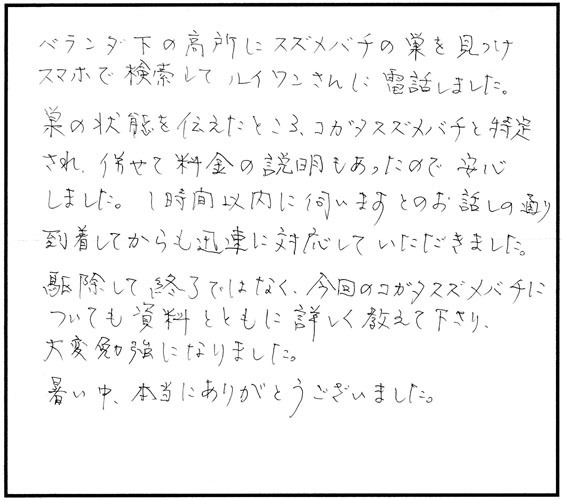 ベランダ下の高所にスズメバチの巣を見つけ
スマホで検索してルイワンさんに電話しました。
巣の状態を伝えたところ、コガタスズメバチと特定
され、併せて料金の説明もあったので安心
しました。1時間以内に伺いますとのお話しの通り
到着してからも迅速に対応していただきました。
駆除して終了ではなく、今回のコガタスズメバチに
ついても資料とともに詳しく教えて下さり、
大変勉強になりました。
暑い中、本当にありがとうございました。